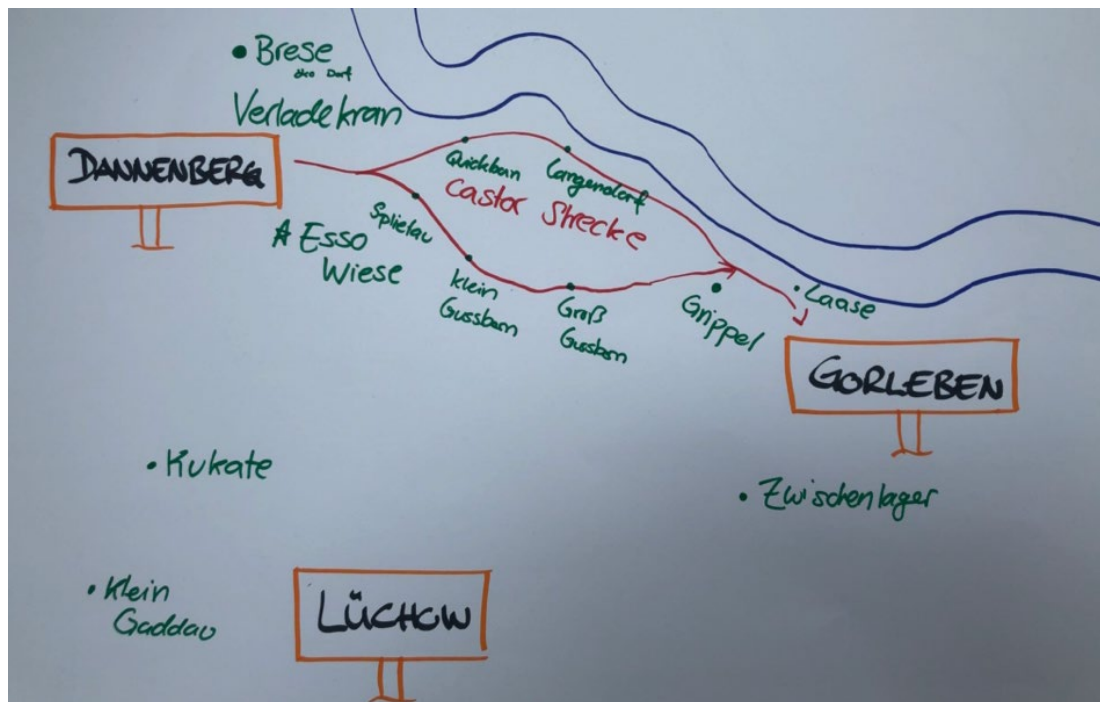 Brese
Verladekran
DANNENBERG
Quickborn
Langendorf
Castor Strecke
Splietau
Esso
Wiese
Klein
Gussborn
Groß
Gussborn
Grippel
Laase
GORLEBEN
Kukate
Zwischenlager
Klein
Gaddau
LÜCHOW